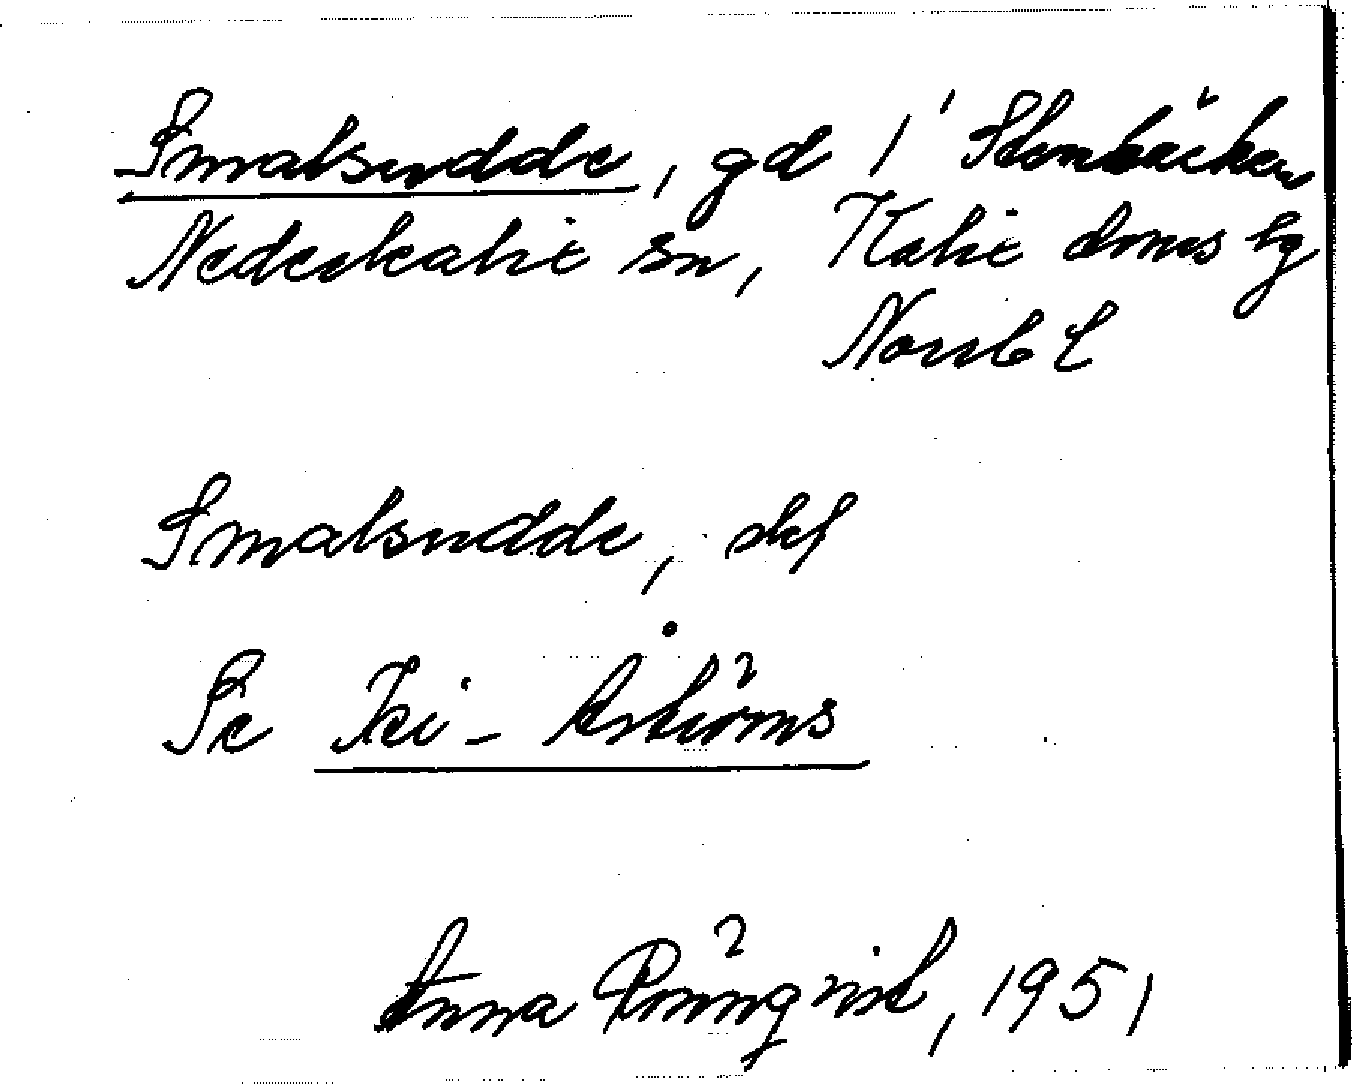 Smalsudde, gd / i Stenbäcken
Nederkalix sn, Kalix doms lg
Norrb L
Smalsudde, skf
Se Jei-Åströms
Anna Rönnqvist, 1951